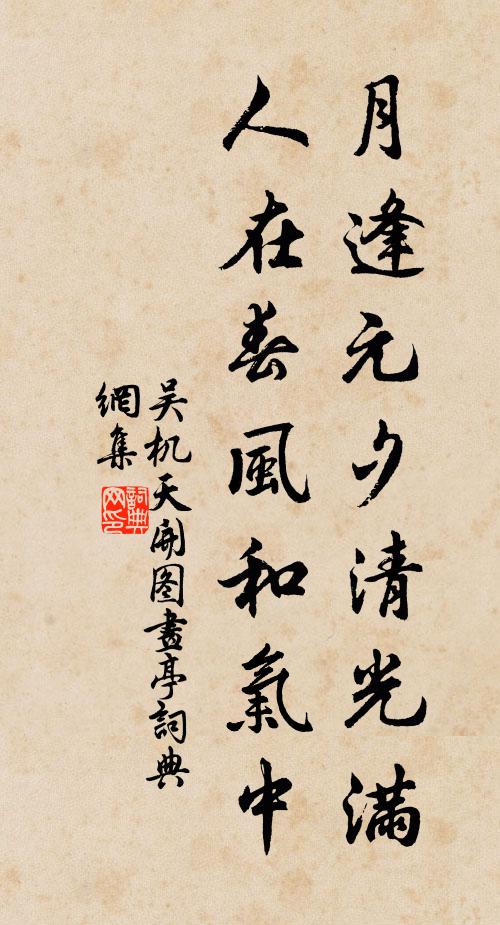 月逢元夕清光滿
人在春風和氣中
吴机天開图畫亭詞典
網集
詞典
网印